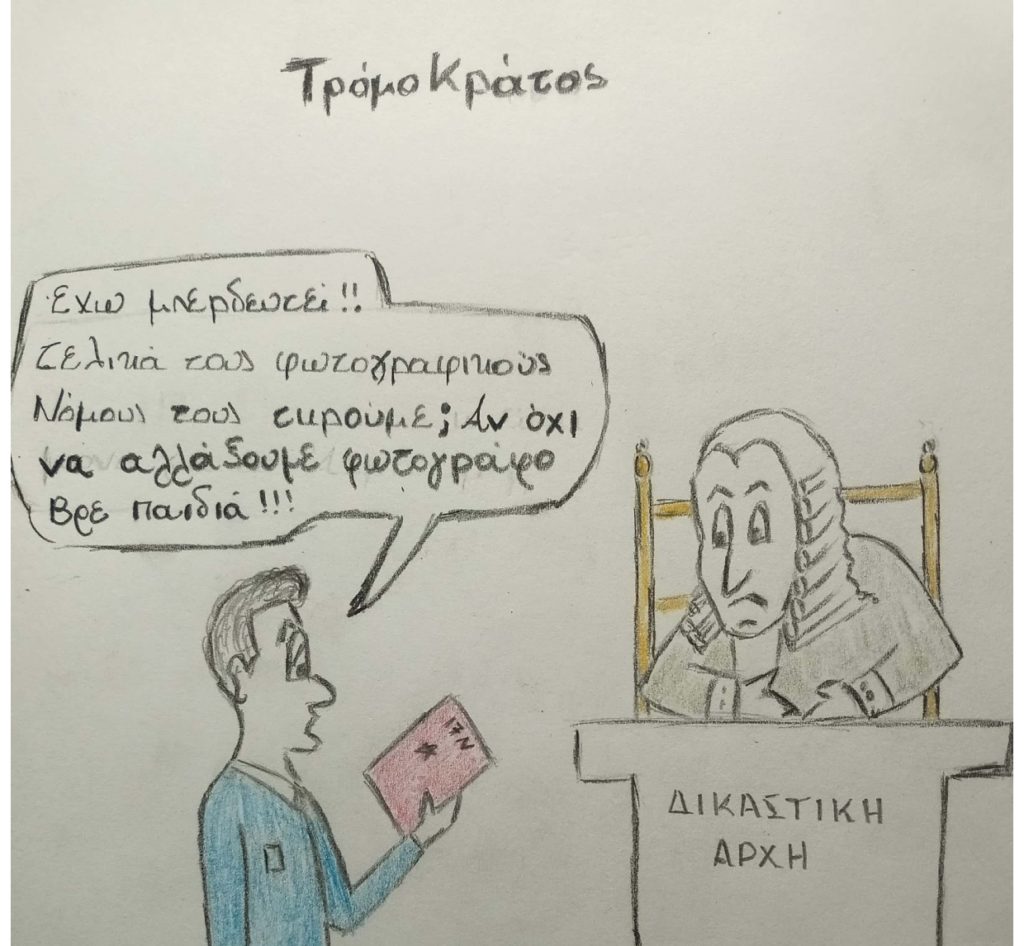 ΤρόμοΚράτος
Έχω μπερδευτεί!!
τελικά τους φωτογραφικούς
Νόμους τους τηρούμε; Αν όχι
να αλλάξουμε φωτογράφο
βρε παιδιά!!!
17Ν
ΔΙΚΑΣΤΙΚΗ
ΑΡΧΗ